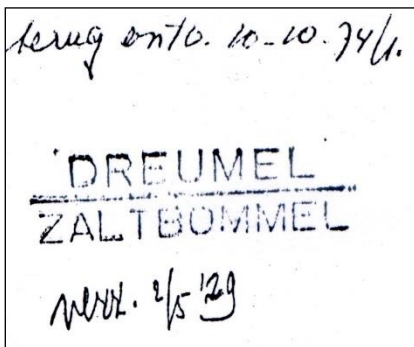 terug ontv. 10-10-74/1.
DREUMEL
ZALTBOMMEL
verz. 2/5 '29